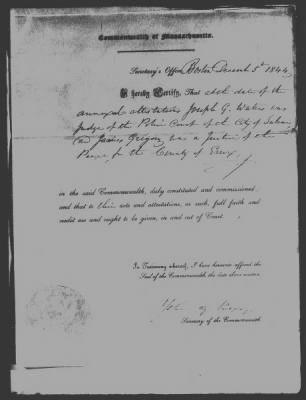 Commonwealth of Massachusetts.
Secretary's Office, Boston, December 5th 1844
I hereby Certify, That at the date of the
annexed attestations Joseph G. Waters was
Judge of the Police Court of the City of Salem
and James Gregory was a Justice of the
Peace for the County of Essex
in the said Commonwealth, duly constituted and commissioned,
and that to their acts and attestations, as such, full faith and
credit are and ought to be given, in and out of Court.
In Testimony whereof, I have hereunto affixed the
Seal of the Commonwealth, the date above written.
Secretary of the Commonwealth